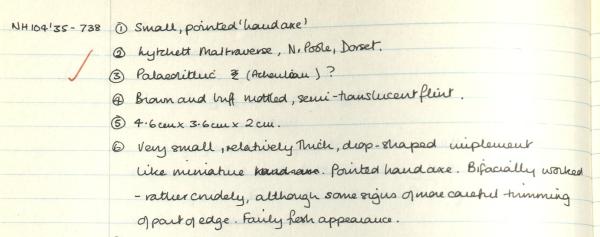 NH104'35-738 ① Small, pointed 'handaxe'
② Lytchett Maltraverse, N. Poole, Dorset.
③ Palaeolithic (Acheulian) ?
④ Brown and buff mottled, semi-translucent flint.
⑤ 4.6cm x 3.6cm x 2cm.
⑥ Very small, relatively thick, drop-shaped implement
like miniature handaxe. Pointed handaxe. Bifacially worked
- rather crudely, although some signs of more careful trimming
of part of edge. Fairly fresh appearance.